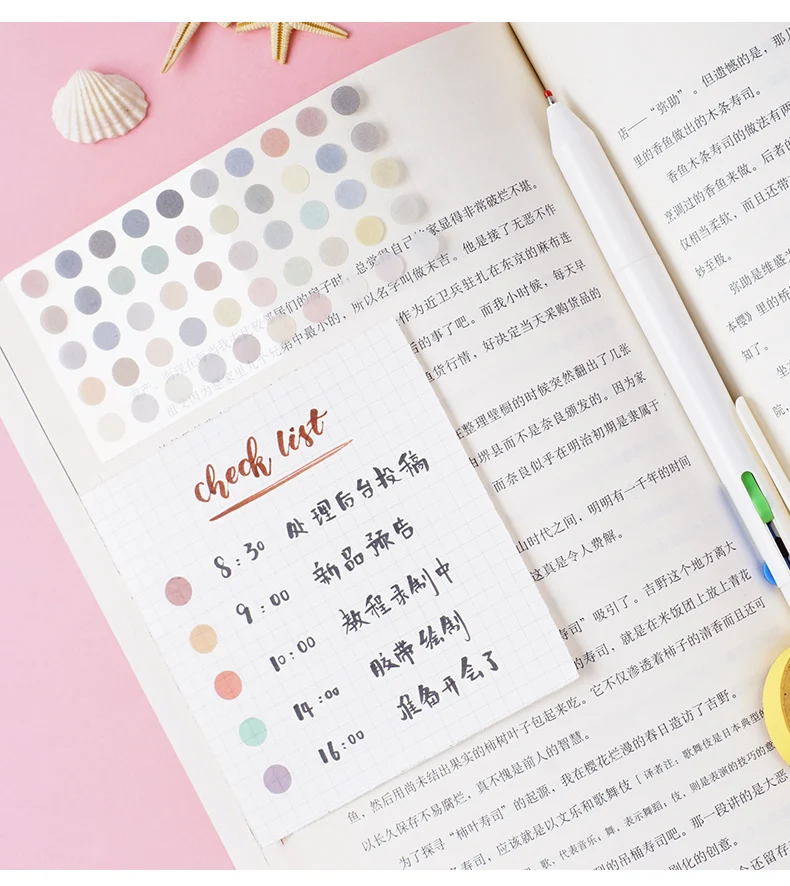 check list
8:30 处理后台投稿
9:00 新品预告
10:00 教程录制中
14:00 胶带绘制
16:00 准备开会了
家显得非常破烂不堪。
他是接了无恶不作
所以名字叫做末吉。
作为近卫兵驻扎在东京的麻布连
的事了吧。而我小时候，每天早
货行情，好决定当天采购货品的
整理壁橱的时候突然翻出了几张
堺县而不是奈良颁发的。因为家
而奈良似乎在明治初期是隶属于
山时代之间，明明有一千年的时间
这真是令人费解。
寿司”吸引了。吉野这个地方离大
的寿司，就是在米饭团上放上青花
鱼，然后用尚未结出果实的柿树叶子包起来吃。它不仅渗透着柿子的清香而且还可
以长久保存不易腐烂，真不愧是前人的智慧。
为了探寻“柿叶寿司”的起源，我在樱花烂漫的春日造访了吉野。
寿司，应该就是以文乐和歌舞伎［译者注：歌舞伎是日本典型的
歌，代表音乐；舞，表示舞蹈；伎，则是表演的技巧的意
的吊桶寿司吧。那一段讲的是大恶
剧化的创意。
店——“弥助”。但遗憾的是，那儿
里的香鱼做出的木条寿司。
香鱼木条寿司的做法有两
烹调过的香鱼来做。后者的
仅相当柔软，而且还带
妙至极。
弥助是维盛
本樱》里的桥
知了。
院，